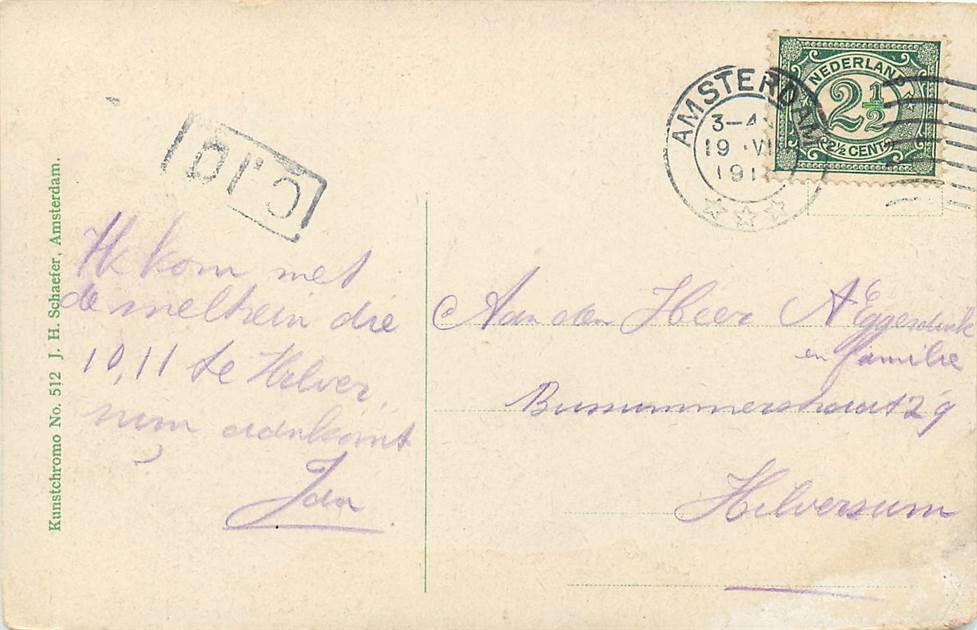 NEDERLAND
2½
2½ CENT
AMSTERDAM
3-4
19 VI
191
C.10
Kunstchromo No. 512 J. H. Schaefer, Amsterdam.
Ik kom met
de meltrein die
10,11 te Hilver
sum aankomt
Jan
Aan den Heer A Eggerdink
en familie
Bussummerstraat 29
Hilversum